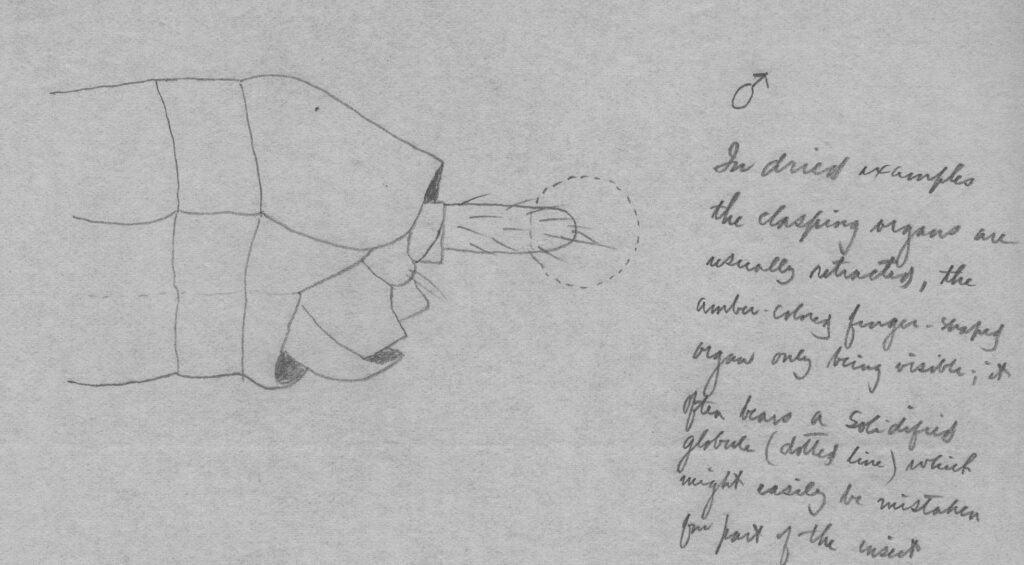 ♂
In dried examples
the clasping organs are
usually retracted, the
amber-colored finger-shaped
organ only being visible; it
often bears a solidified
globule (dotted line) which
might easily be mistaken
for part of the insect